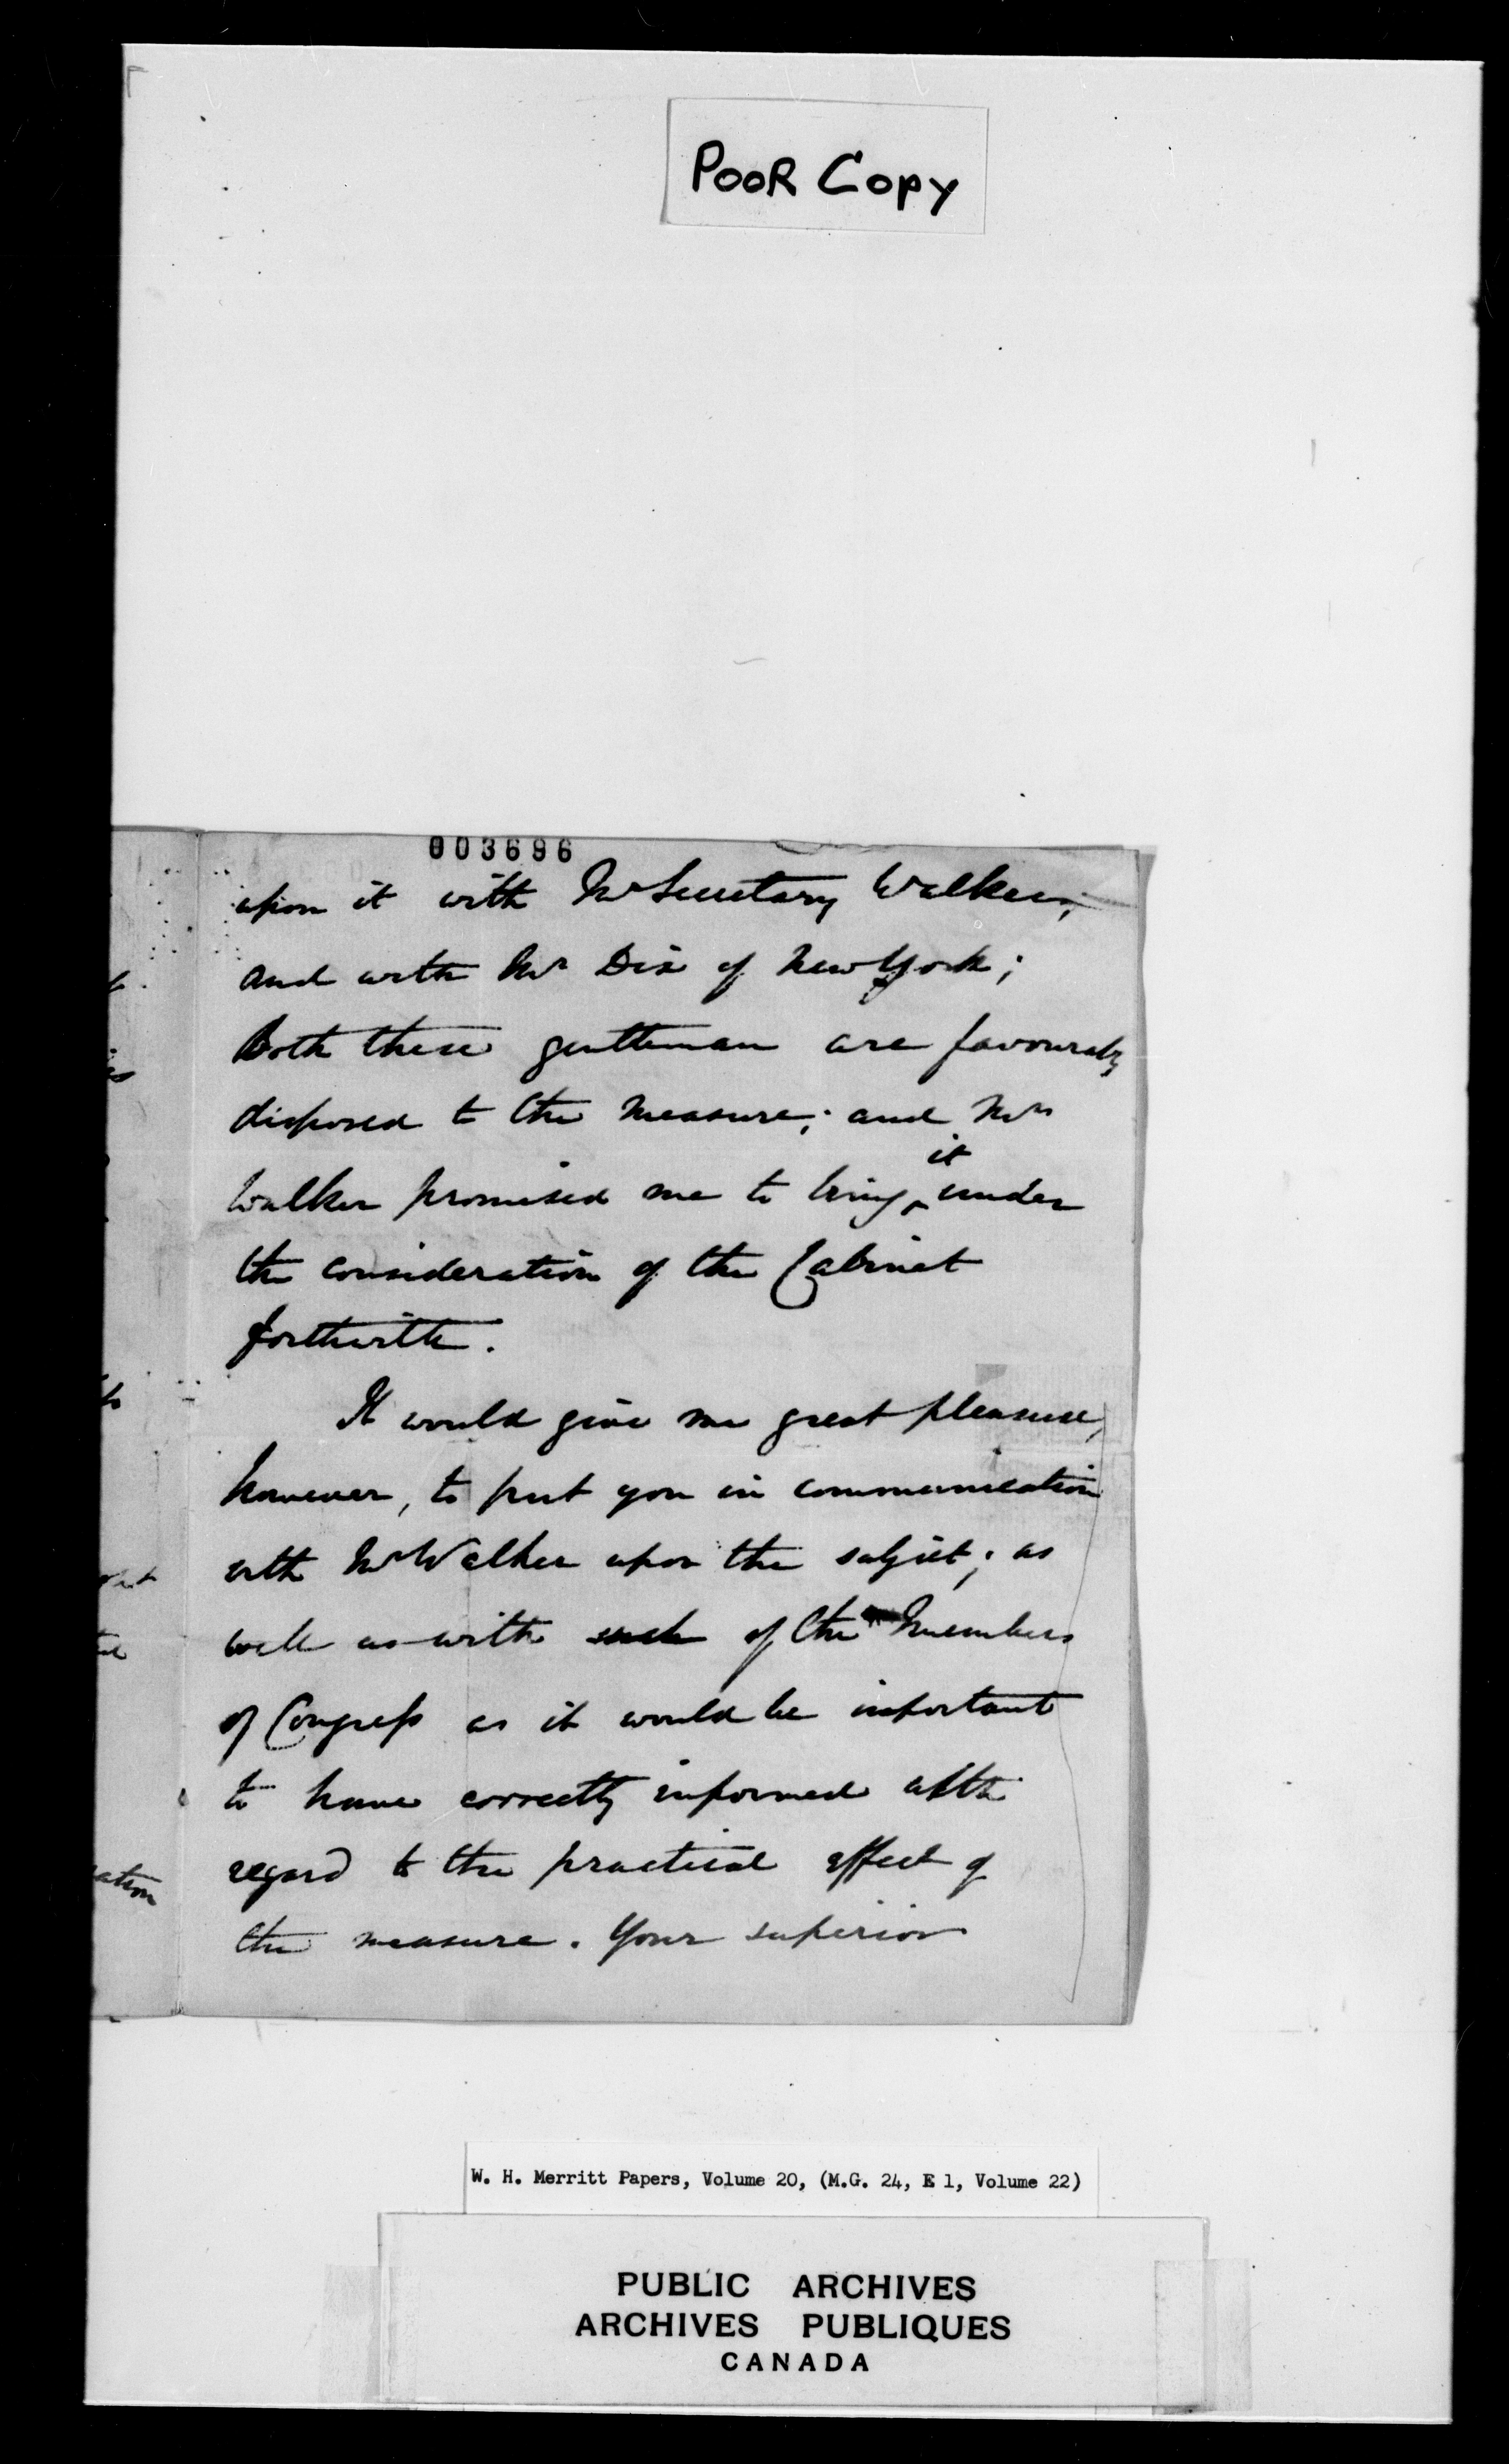 POOR COPY
003696
upon it with Mr Secretary Walker,
and with Mr Dix of New York;
Both these gentleman are favourably
disposed to the measure; and Mr
it
Walker promised me to bring ^ under
the consideration of the Cabinet
forthwith.
It would give me great pleasure,
however, to put you in communication
with Mr Walker upon the subject; as
well as with such of the Members
of Congress as it would be important
to have correctly informed with
regard to the practical effect of
the measure. Your superior
ation
W. H. Merritt Papers, Volume 20, (M.G. 24, E 1, Volume 22)
PUBLIC ARCHIVES
ARCHIVES PUBLIQUES
CANADA